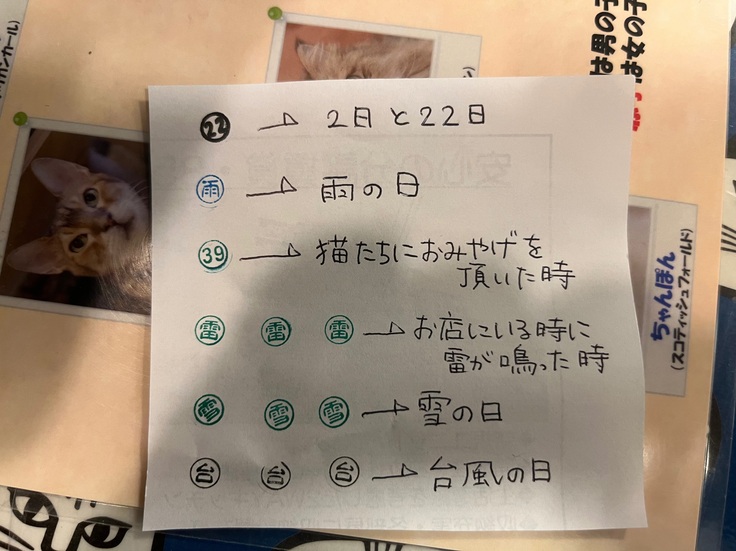 ㉒ → 2日と22日
雨 → 雨の日
39 → 猫たちにおみやげを
頂いた時
雷 雷 雷 → お店にいる時に
雷が鳴った時
雪 雪 雪 → 雪の日
台 台 台 → 台風の日
は男の子
は女の子
ちゃんぽん
(スコティッシュフォールド)